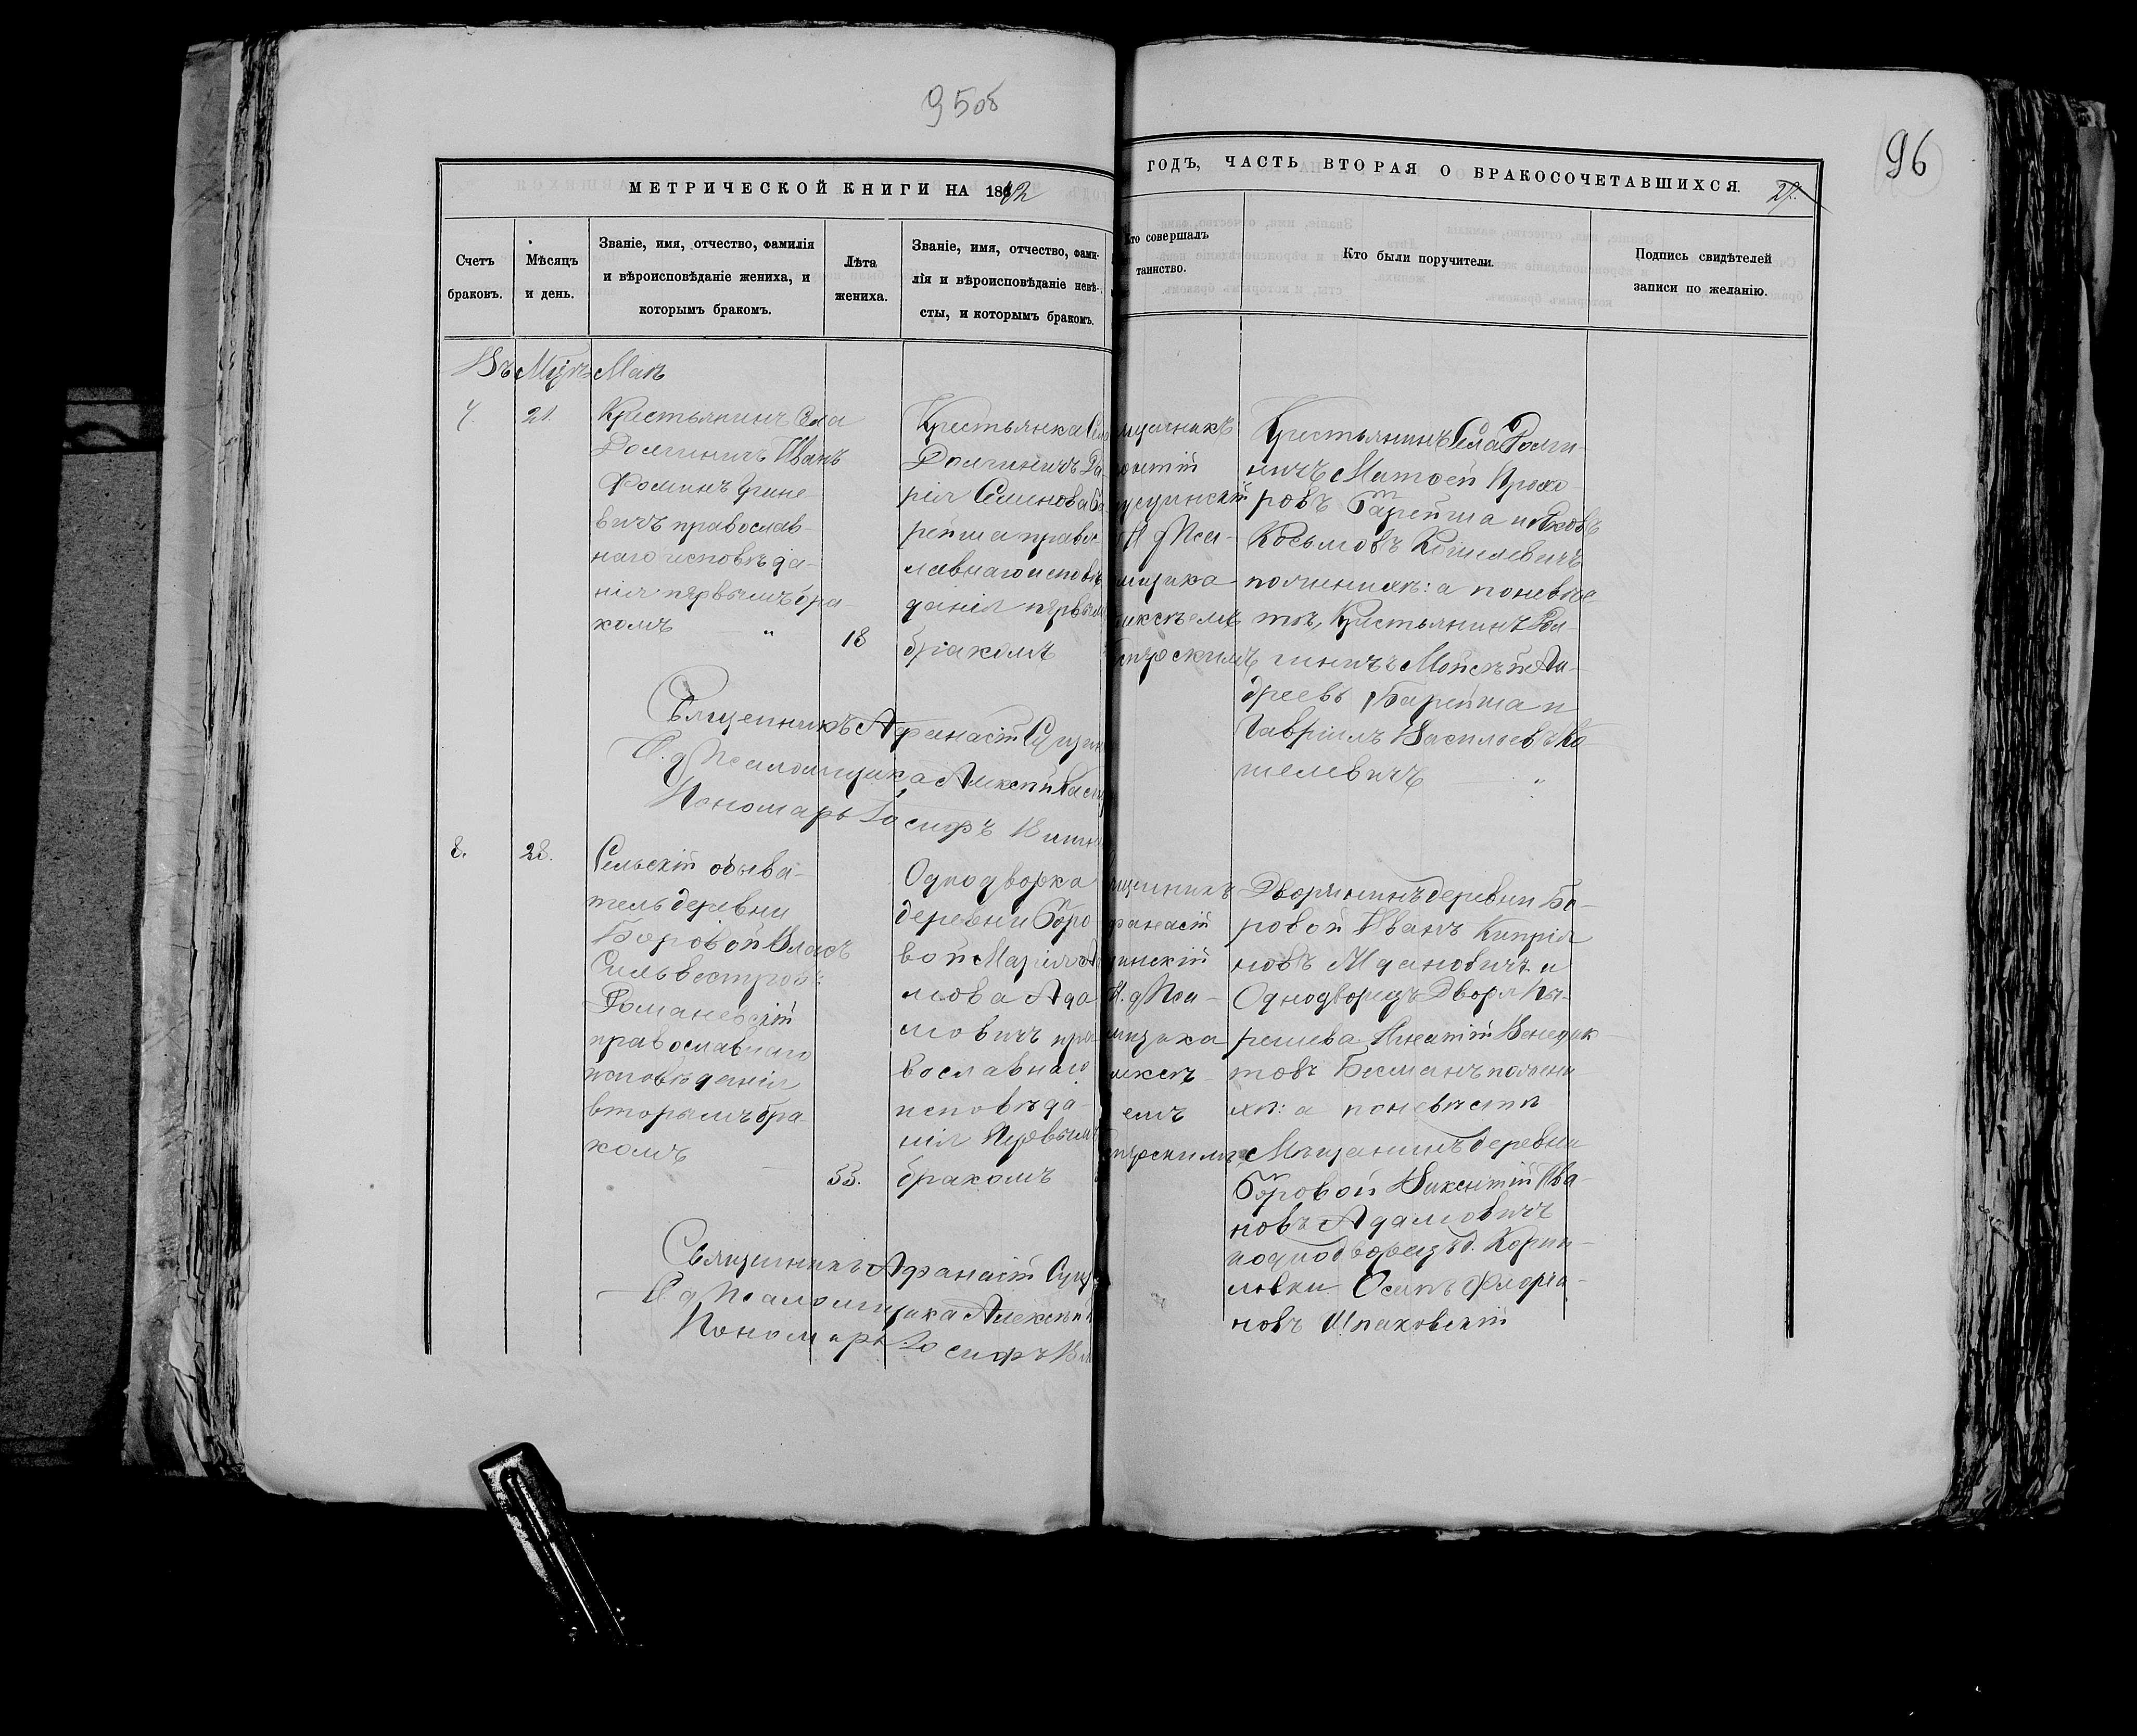 95об
96
МЕТРИЧЕСКОЙ КНИГИ НА 1882
ГОДЪ, ЧАСТЬ ВТОРАЯ О БРАКОСОЧЕТАВШИХСЯ.
27.
Счетъ
браковъ.
Мѣсяцъ
и день.
Званіе, имя, отчество, фамилія
и вѣроисповѣданіе жениха, и
которымъ бракомъ.
Лѣта
жениха.
Званіе, имя, отчество, фами-
лія и вѣроисповѣданіе невѣ-
сты, и которымъ бракомъ.
Кто совершалъ
таинство.
Кто были поручители.
Подпись свидѣтелей
записи по желанію.
Въ Маѣ
7.
21.
Крестьянинъ Села
Долгиничъ Иванъ
Ѳоминъ
православ-
наго исповѣда-
нія первымъ бра-
комъ
18
Крестьянка Села
Долгиничъ Да
рія Семинова Ба
рейша правос
лавнаго исповѣ
данія первым
бракомъ
щенникъ
щинскій
И. д Псал-
мщика
Крестьянинъ Села Долги-
ничъ Матѳей Прохо
ровъ Барейша и Яковъ
Косьмовъ Кошелевичъ
по женихѣ: а по невѣс
тѣ, Крестьянинъ Дол-
гиничъ Мойсѣй Ан-
дреевъ Барейша и
Гавріилъ Васильевъ Ко
шелевичъ
Священникъ Афанасій Сущин
И. д Псаломщика Алексѣй
Пономарь Іосифъ
8.
28.
Сельскій обыва-
тель деревни
Боровой Власъ
Сильвестровъ
Романовскій
православнаго
исповѣданія
вторымъ бра-
комъ
33.
Однодворка
деревни Боро-
вой Марія Ада
мова Ада
мовичъ пра
вославнаго
исповѣда-
нія первымъ
бракомъ
щенникъ
фанасій
щинскій
И. д Псал-
мщика
лексѣ-
емъ
Дворянинъ деревни Бо-
ровой Иванъ Кипрія
новъ Ждановичъ и
Однодворецъ Двора
Игнатій Венедик-
товъ по жени
хѣ: а по невѣстѣ
Мѣщанинъ деревни
Боровой Викентій Ива-
новъ Адамовичъ
и однодворецъ д.
Осипъ Флоріа-
новъ Шпаковскій
Священникъ Афанасій Сущ
И д Псаломщика Алексѣй
Пономарь Іосифъ